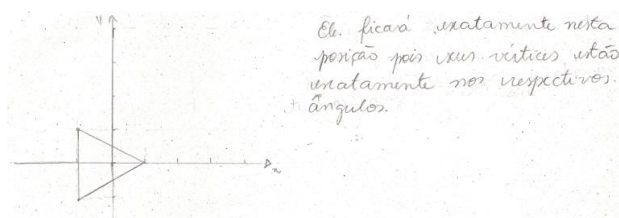 y
Ele. ficará exatamente nesta
posição pois seus vértices estão
exatamente nos respectivos.
ângulos.
x